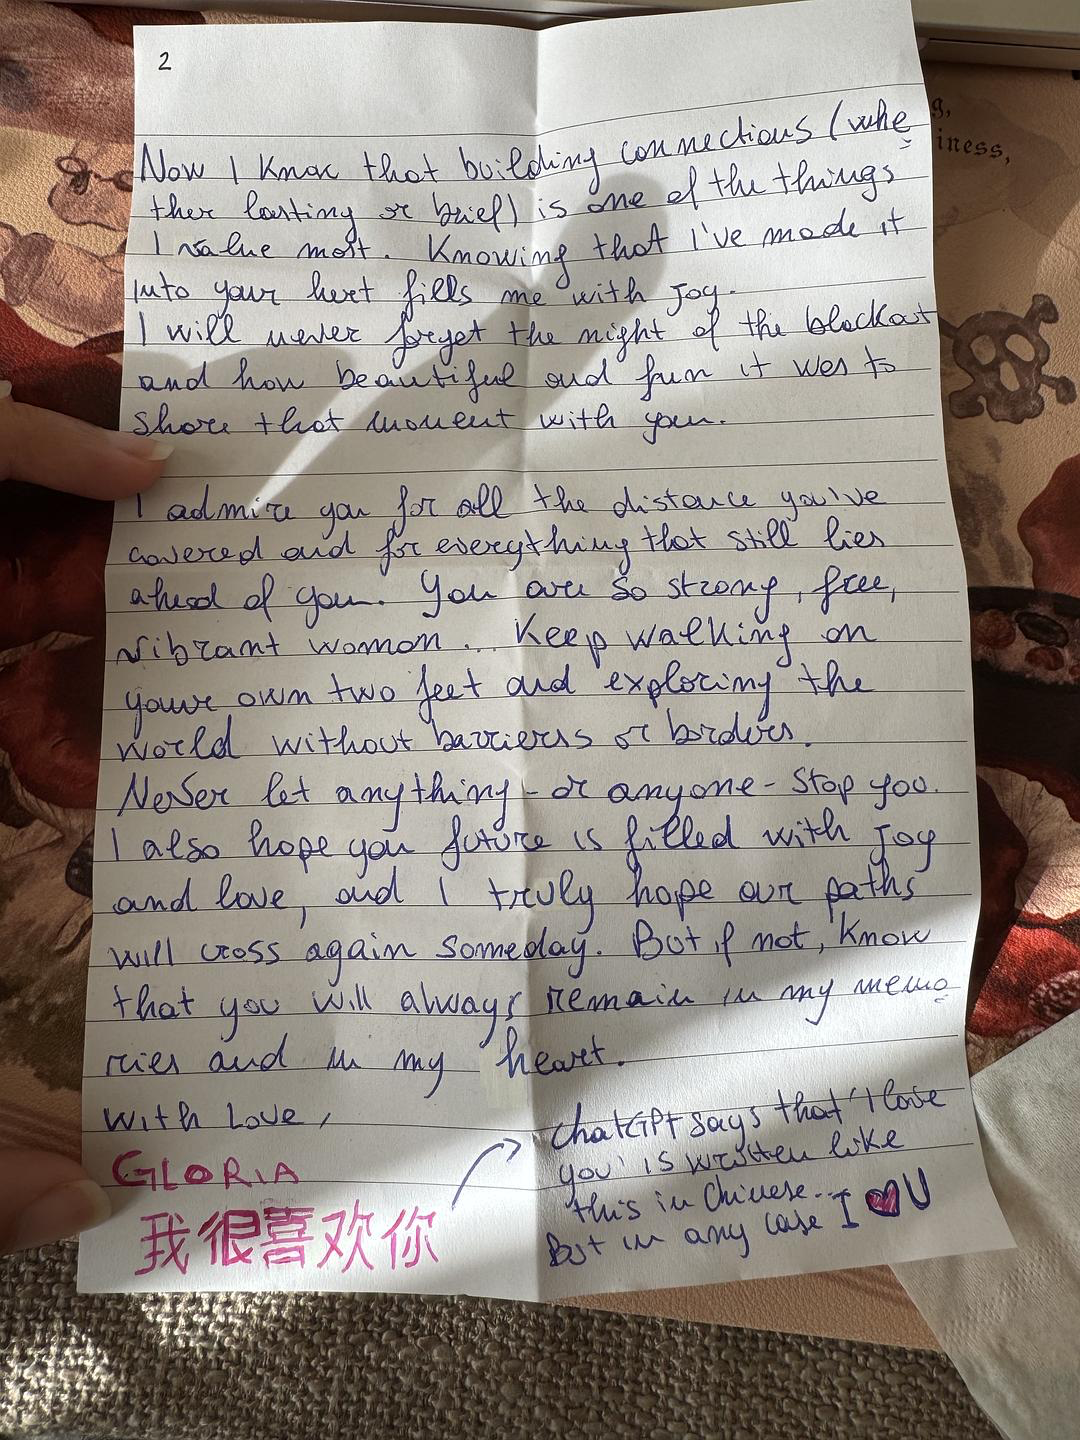 2
Now I Know that building connections (whe
ther lasting or brief) is one of the things
I value most. Knowing that I've made it
into your hert fills me with joy.
I will never forget the night of the blackout
and how beautiful and fun it was to
share that moment with you.
I admire you for all the distance you've
covered and for everything that still lies
ahead of you. You are so strong, free,
vibrant woman... Keep walking on
youre own two feet and exploring the
world without barrierss or borders.
Never let anything - or anyone - stop you.
I also hope you future is filled with joy
and love, and I truly hope our paths
will cross again someday. But if not, Know
that you will always remain in my memo
ries and in my heart.
With Love,
GLORIA
我很喜欢你
ChatGPT says that 'I love
you' is written like
this in Chinese...
But in any case I ♥ U
g,
iness,